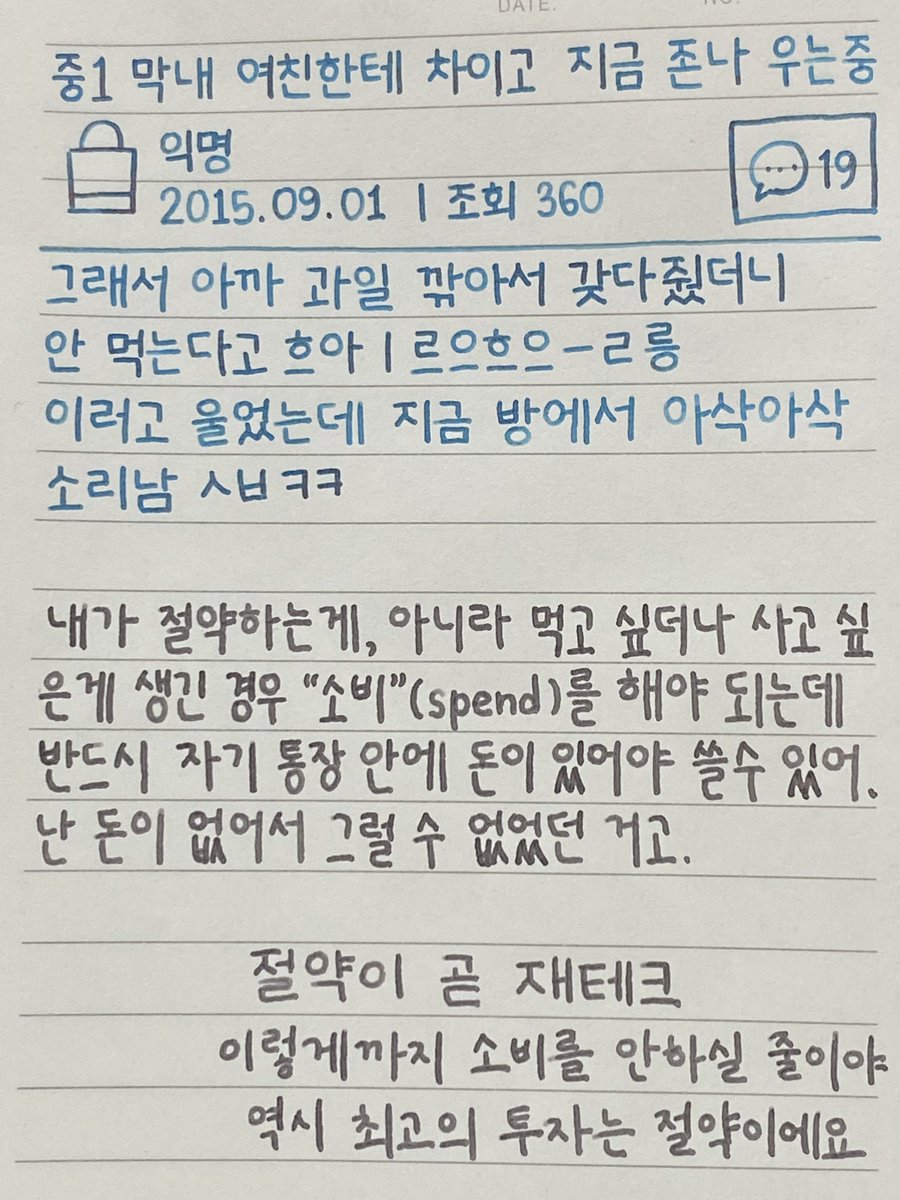 DATE. NO.
중1 막내 여친한테 차이고 지금 존나 우는중
익명
2015.09.01 | 조회 360
19
그래서 아까 과일 깎아서 갖다줬더니
안 먹는다고 흐아ㅣ르으흐으ㅡㄹ릉
이러고 울었는데 지금 방에서 아삭아삭
소리남 ㅅㅂㅋㅋ
내가 절약하는게, 아니라 먹고 싶더나 사고 싶
은게 생긴 경우 “소비”(spend)를 해야 되는데
반드시 자기 통장 안에 돈이 있어야 쓸수 있어.
난 돈이 없어서 그럴 수 없었던 거고.
절약이 곧 재테크
이렇게까지 소비를 안하실 줄이야
역시 최고의 투자는 절약이에요